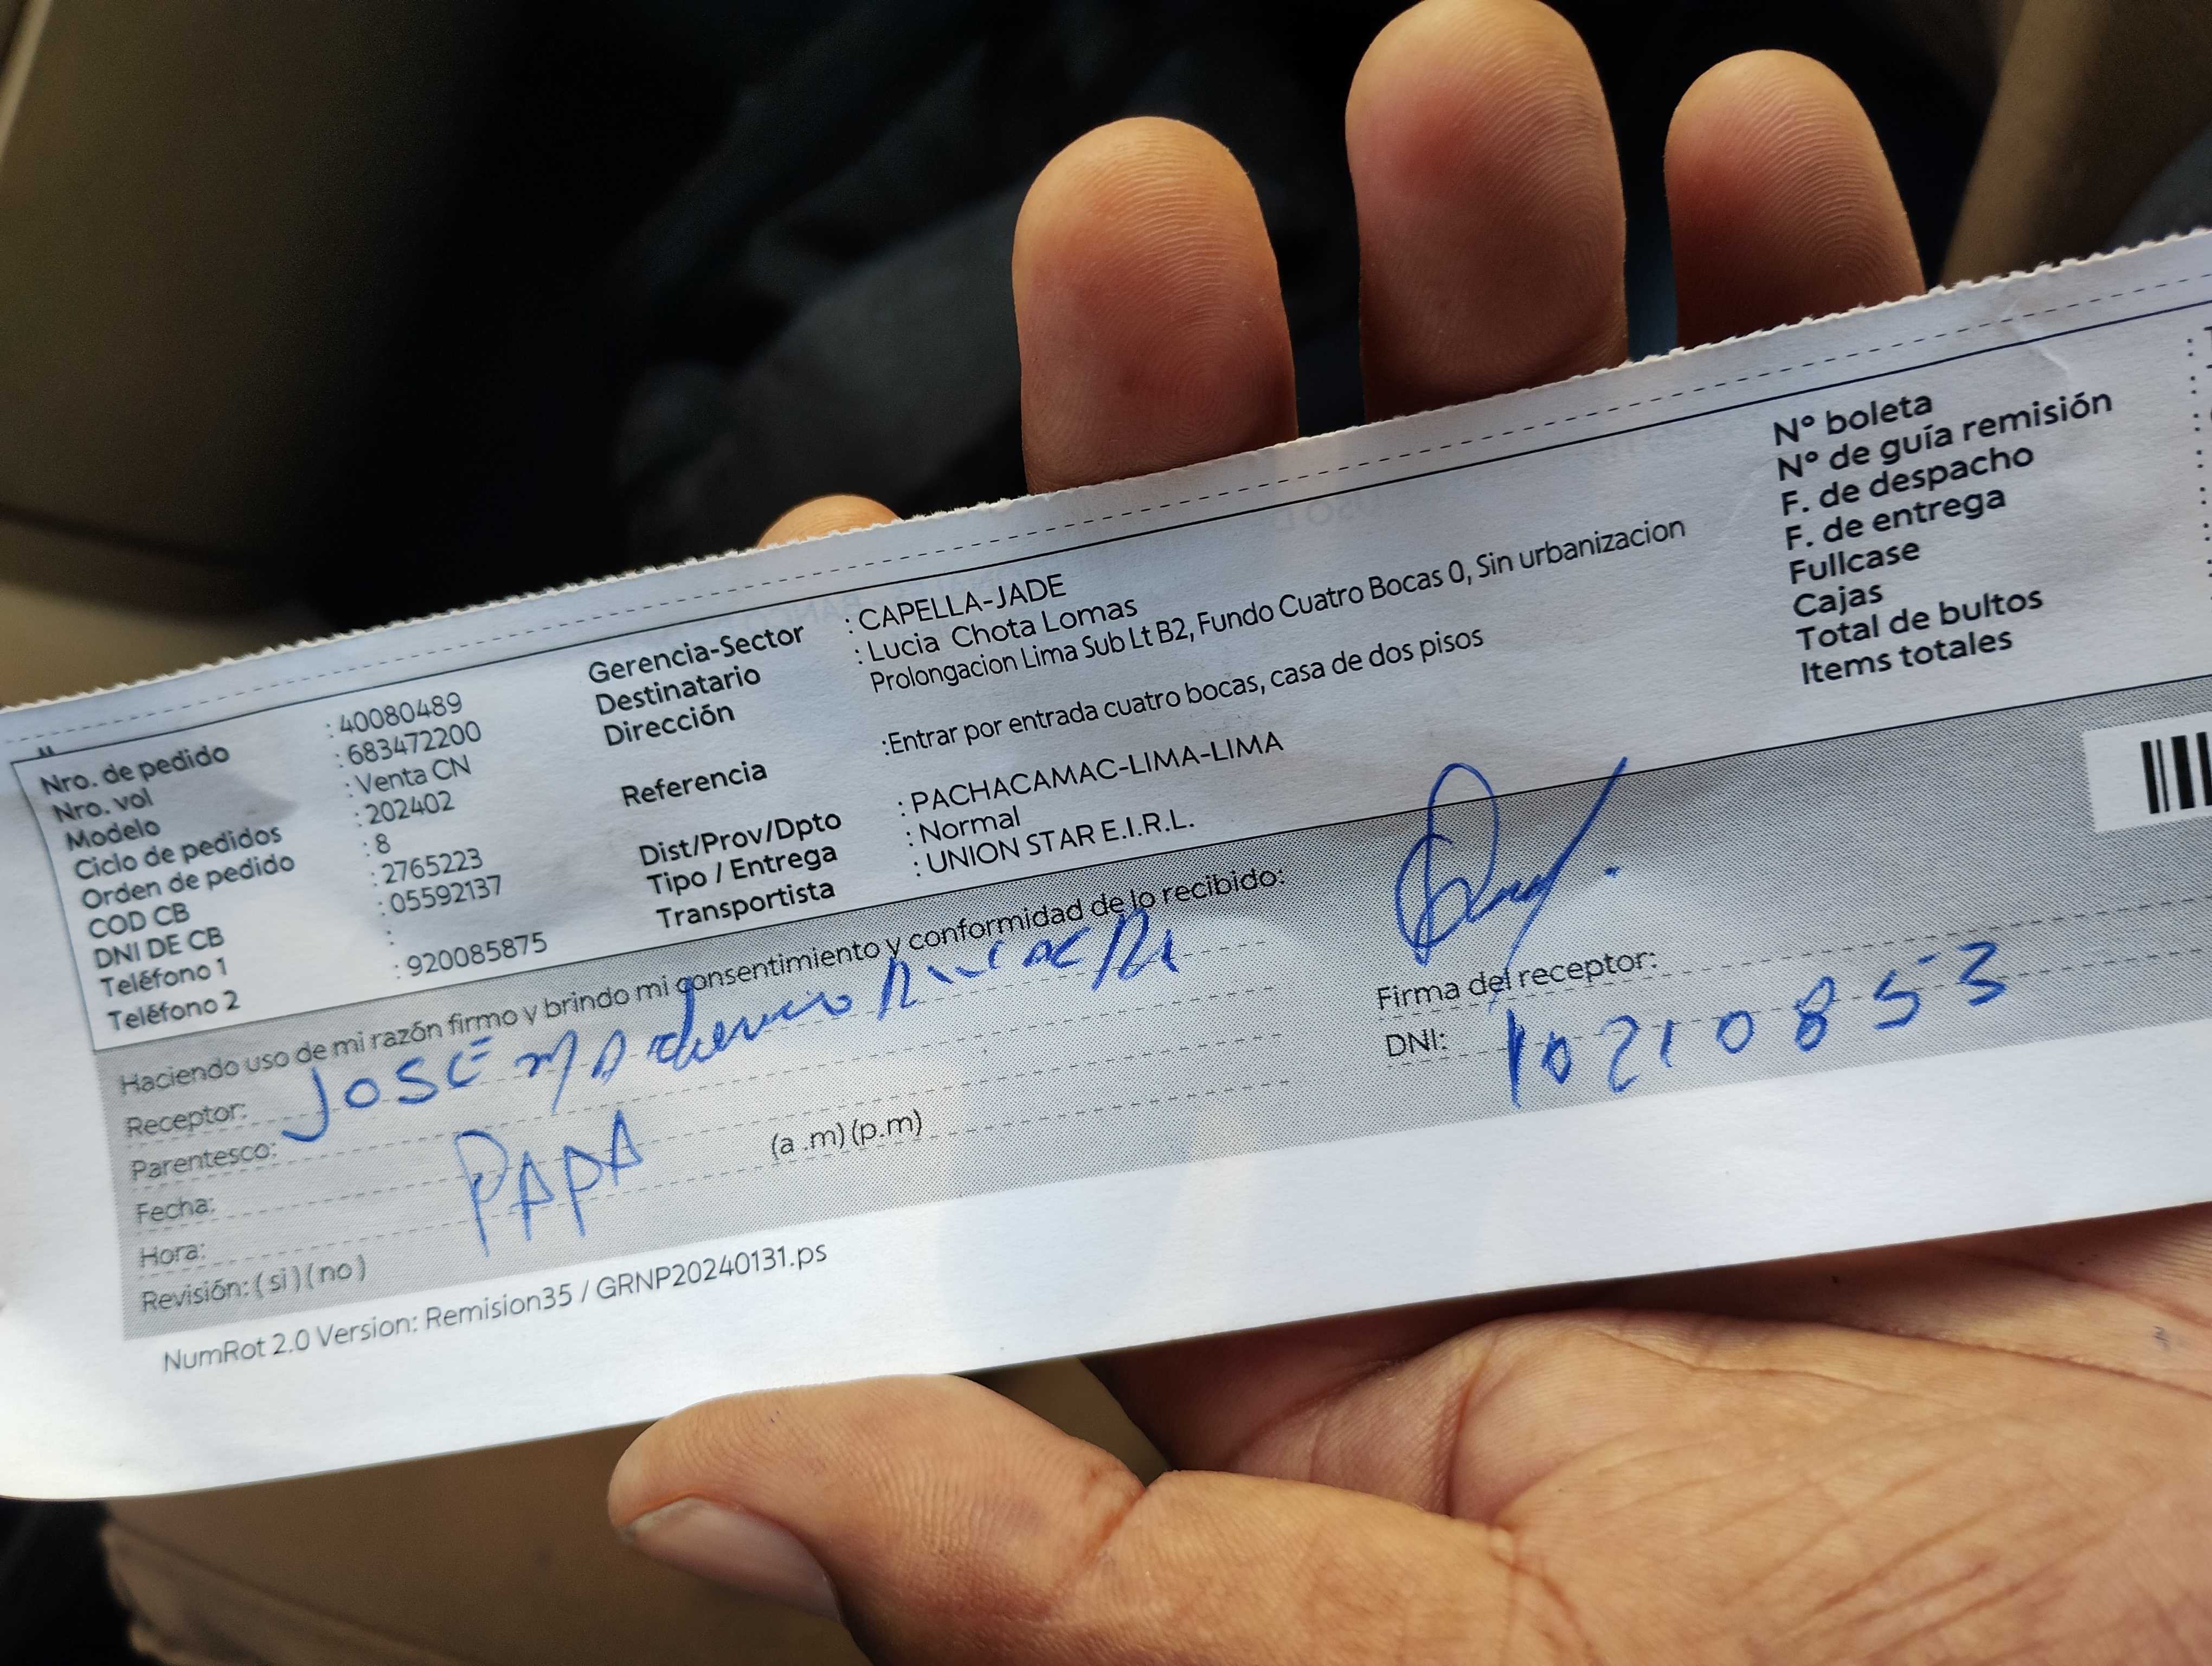 Nro. de pedido : 40080489
Nro. vol : 683472200
Modelo : Venta CN
Ciclo de pedidos : 202402
Orden de pedido : 8
COD CB : 2765223
DNI DE CB : 05592137
Teléfono 1 :
Teléfono 2 : 920085875
Gerencia-Sector : CAPELLA-JADE
Destinatario : Lucia Chota Lomas
Dirección Prolongacion Lima Sub Lt B2, Fundo Cuatro Bocas 0, Sin urbanizacion
Referencia :Entrar por entrada cuatro bocas, casa de dos pisos
Dist/Prov/Dpto : PACHACAMAC-LIMA-LIMA
Tipo / Entrega : Normal
Transportista : UNION STAR E.I.R.L.
N° boleta :
N° de guía remisión :
F. de despacho :
F. de entrega :
Fullcase :
Cajas :
Total de bultos
Items totales
Haciendo uso de mi razón firmo y brindo mi consentimiento y conformidad de lo recibido:
Receptor: JOSE
Parentesco: PAPA
Fecha:
Hora: (a .m) (p.m)
Revisión: ( si ) ( no )
Firma del receptor:
DNI: 10210853
NumRot 2.0 Version: Remision35 / GRNP20240131.ps